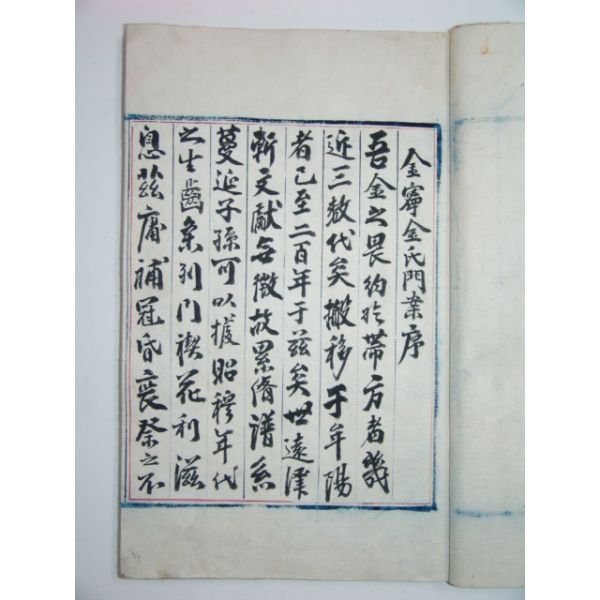 金寧金氏門案序
吾金之畏約於帶方者幾
近三数代矣搬移于牟陽
者已至二百年于玆矣世遠澤
斬文獻無徵故累脩譜系
蔓延子孫可以援昭穆年代
之生齒条列門禊花利滋
息玆庸補冠昏喪祭之不